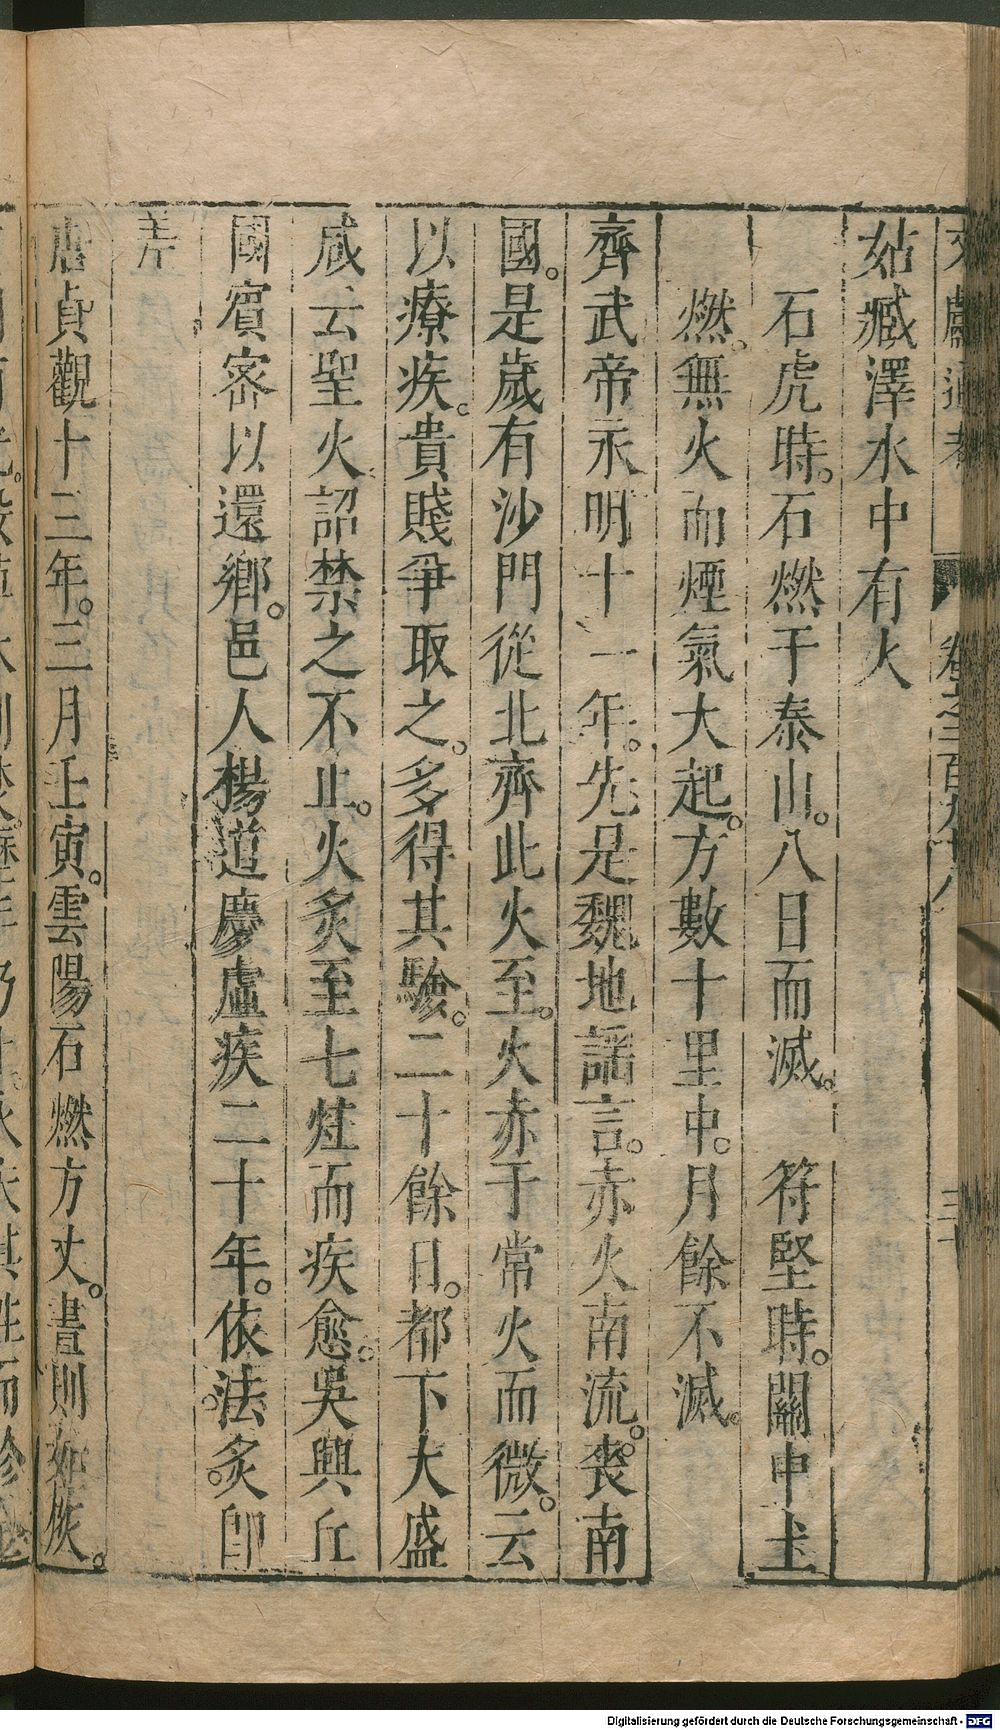 文獻通考 卷之二百九十八 三十
姑臧澤水中有火
石虎時。石燃于泰山。八日而滅。 符堅時。關中土
燃。無火而煙氣大起。方數十里中。月餘不滅。
齊武帝永明十一年。先是魏地謠言。赤火南流。喪南
國。是歲有沙門從北齊此火至。火赤于常火而微。云
以療疾。貴賤爭取之。多得其驗。二十餘日。都下大盛
咸云聖火詔禁之不止。火炙至七炷而疾愈。吳興丘
國賓密以還鄉。邑人楊道慶虛疾二十年。依法。炙。卽
差
唐貞觀十三年。三月壬寅。雲陽石燃方丈。晝則如灰。
Digitalisierung gefördert durch die Deutsche Forschungsgemeinschaft - DFG